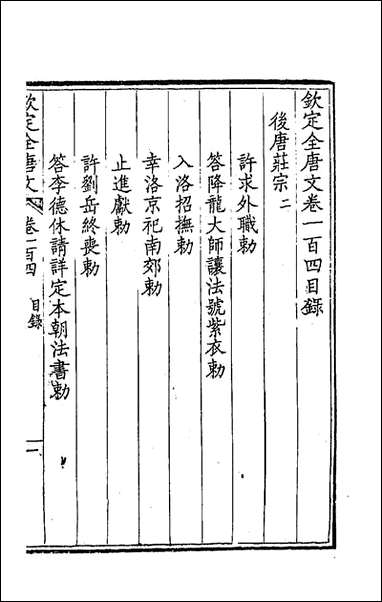 欽定全唐文卷一百四目錄
後唐莊宗二
許求外職勅
答降龍大師讓法號紫衣勅
入洛招撫勅
幸洛京祀南郊勅
止進獻勅
許劉岳終喪勅
答李德休請詳定本朝法書勅
欽定全唐文 卷一百四 目錄 一